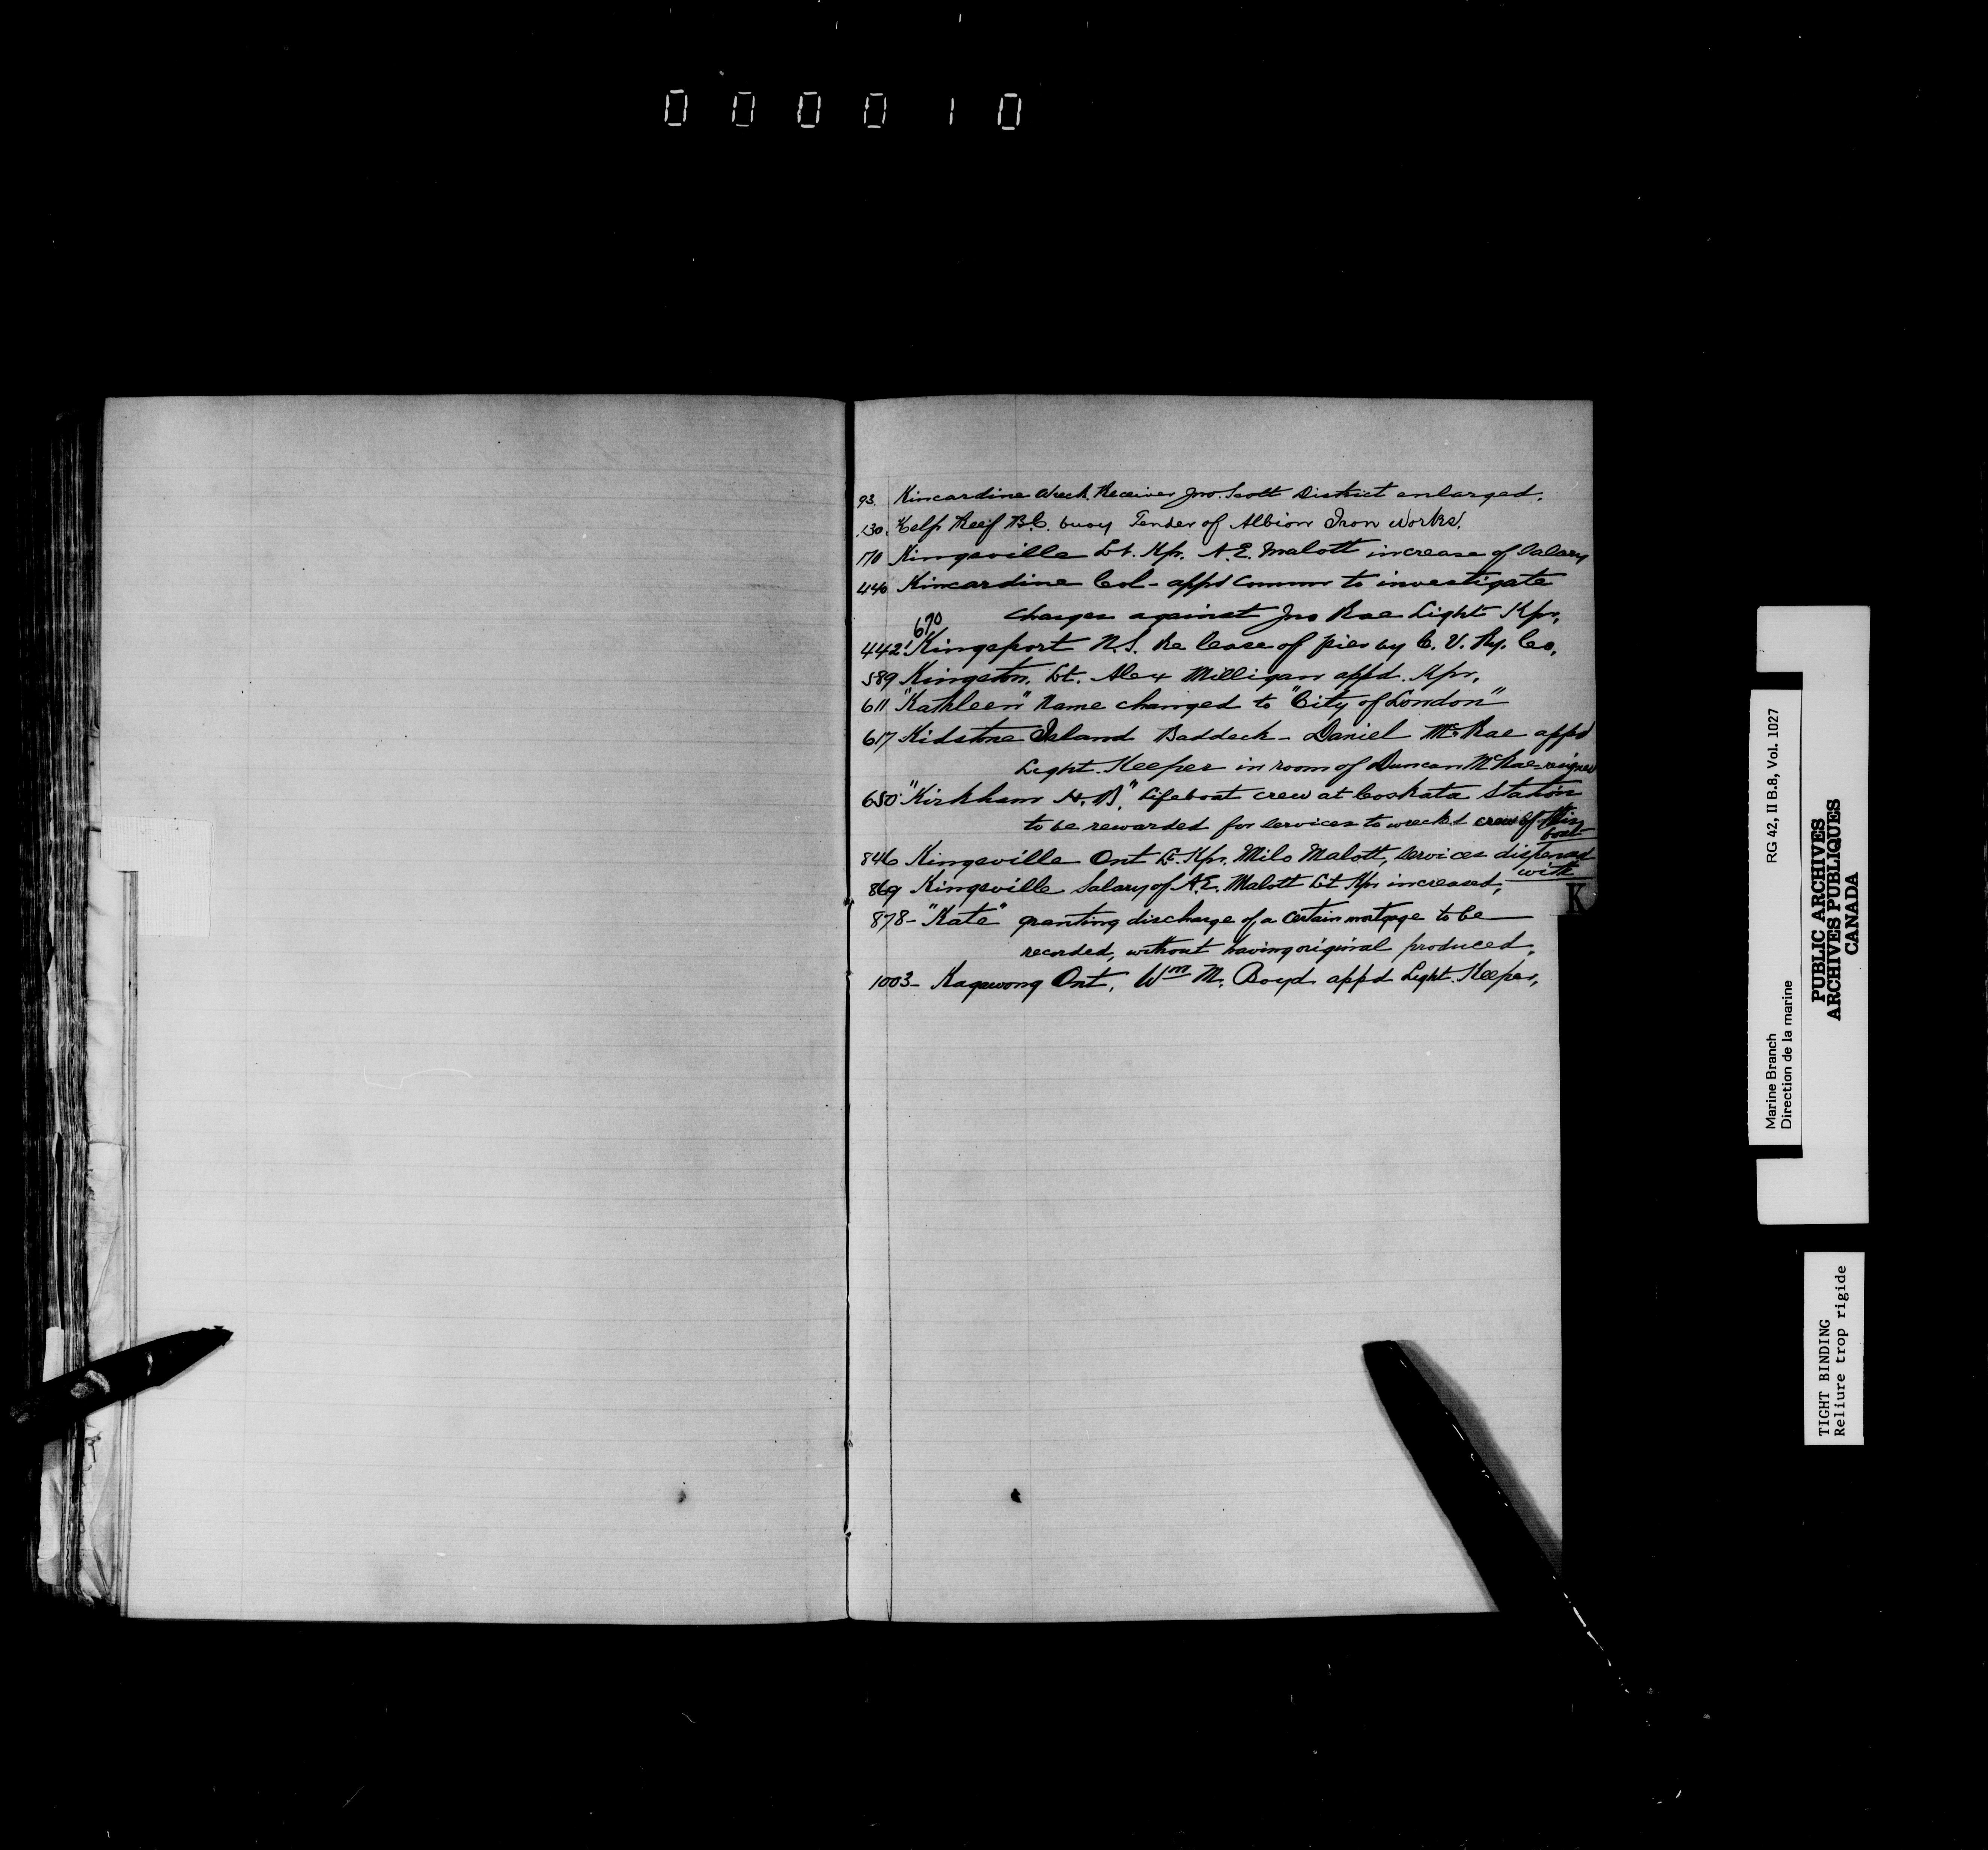 000010
93. Kincardine Wreck Receiver Jno. Scott District enlarged.
130. Kelp Reef B.C. buoy Tender of Albion Iron Works.
170 Kingsville Lt. Kpr. A. E. Malott increase of Salary
440 Kincardine Col - appd Commr to investigate
charges against Jno Rae Light Kpr.
670
442 Kingsport N.S. Re lease of pier by C. V. Ry. Co.
589 Kingston. Lt. Alex Milligan appd. Kpr.
611 "Kathleen" Name changed to "City of London"
617 Kidstone Island Baddeck - Daniel McRae appd
Light. Keeper in room of Duncan McRae resigned
650 "Kirkham H. B." Lifeboat crew at Coskata Station
to be rewarded for services to wrecked crew of this
boat
846 Kingsville Ont Lt. Kpr. Milo Malott, Services dispensed
with
869 Kingsville Salary of A. E. Malott Lt Kpr increased,
878 - "Kate" granting discharge of a certain mortgage to be
recorded, without having original produced.
1003 - Kagawong Ont. Wm M. Boyd appd Light. Keeper.
K
Marine Branch
Direction de la marine
RG 42, II B.8, Vol. 1027
PUBLIC ARCHIVES
ARCHIVES PUBLIQUES
CANADA
TIGHT BINDING
Reliure trop rigide